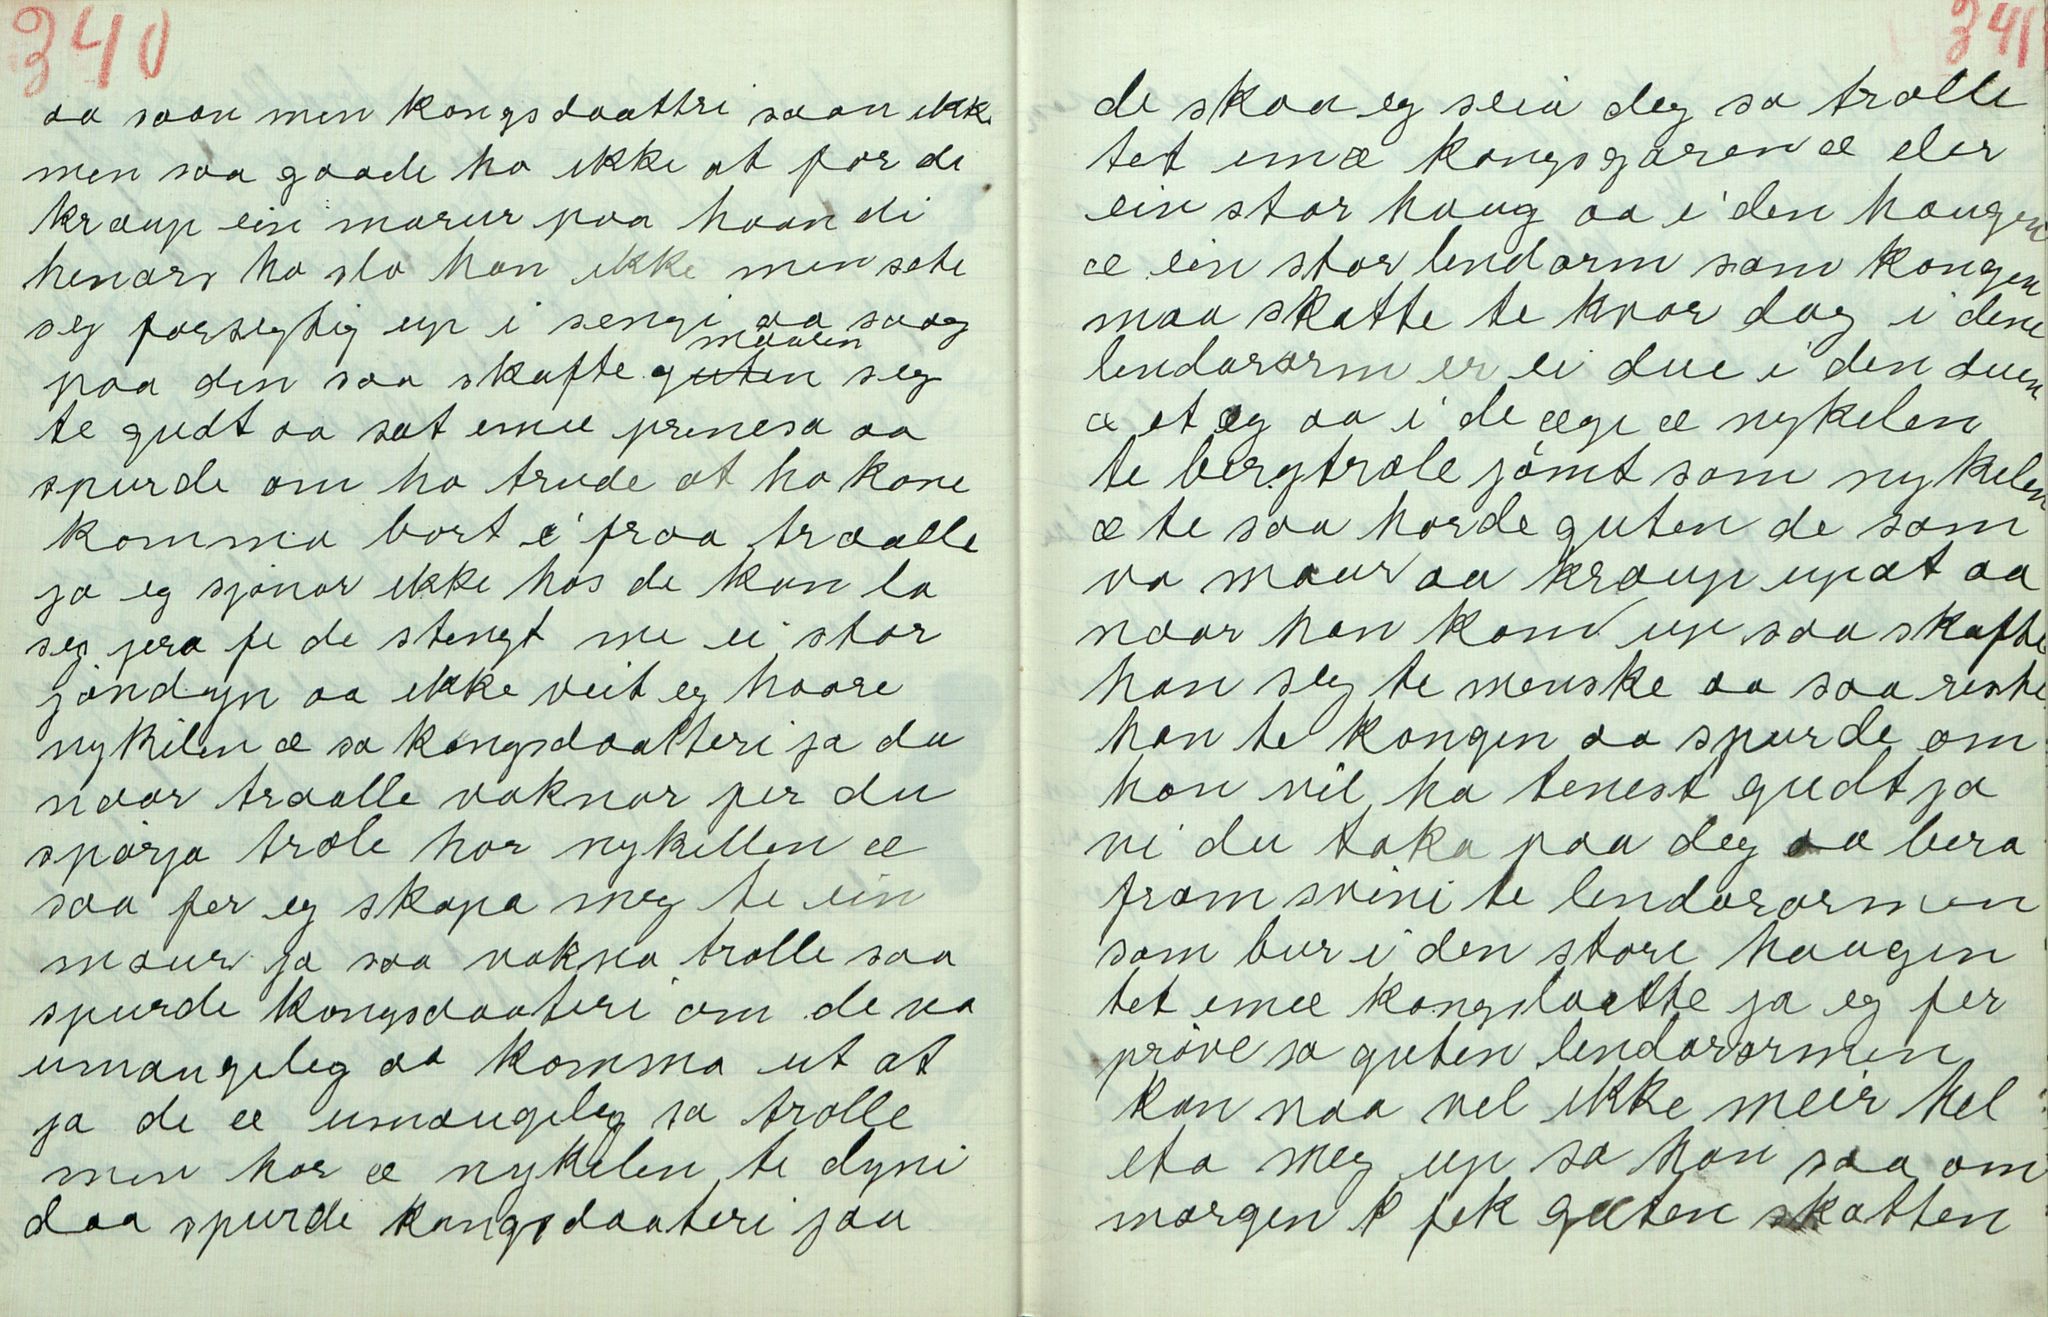 340
aa saav men kongsdaattri saav ikke
men saa gaade ho ikke at for de
kraup ein maur paa haandi
henars ho slo han ikke men sete
seg forsegtig up i sengi aa saag
paa den saa skafte maaren seg
te gudt aa sat imæ prinesa aa
spurde om ho trude at ho kane
komma bort i fraa traalle
ja eg sjønar ikke hos de kan la
seg jera fe de stengt me ei stor
jøndyn aa ikke veit eg haare
nykelen æ sa kongsdaatteri ja du
naar traalle vaknar fer du
spørja trale hor nykellen æ
saa fer eg skapa meg te ein
maur ja saa vakna tralle saa
spurde kongsdaateri om de va
umaugeleg aa komma ut at
ja de æ umaugeleg sa tralle
men hor æ nykelen te dyni
daa spurde kongsdaateri jau
341
de skaa eg seia deg sa tralle
tet imæ kongsgaren æ eler
ein stor haug aa i den haugen
æ ein stor lendorm som kongen
maa skatte te kvar dag i dene
lendarorm er ei due i den duen
æ et æg aa i de ægi æ nykelen
te bergtrale jømt som nykelen
æ te saa horde guten de som
va maur aa kraup upat aa
naar han kom up saa skafte
han seg te menske aa saa reiste
han te kongen aa spurde om
han vil ha tenest gudt ja
vi du taka paa deg aa bera
fram svini te lendarormen
som bur i den store haugen
tet imæ kongslaatte ja eg fer
prøve sa guten lendarormen
kan naa vel ikke meir hel
eta meg up sa han saa om
morgen fek guten skatten